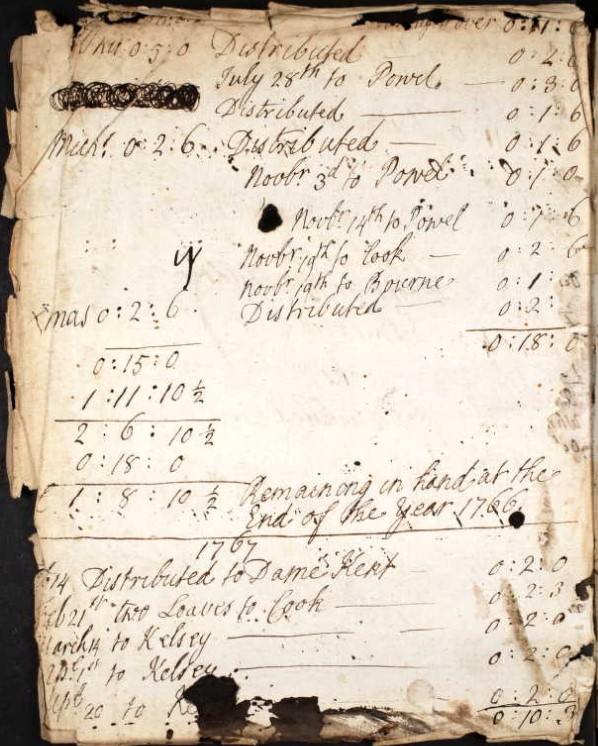 over 0:11:
Whit 0:5:0 Distributed 0:2:
July 28th to Powel 0:3:0
Distributed 0:1:6
Mich: 0:2:6 Distributed 0:1:6
Novbr 3d to Powel 0:1:0
Novbr 14th to Powel 0:1:6
Novbr 19th to Cook 0:2:6
Novbr 19th to Bourne 0:1:
Xmas 0:2:6 Distributed 0:2:
0:18:0
0:15:0
1:11:10 ½
2:6:10 ½
0:18:0
1:8:10 ½ Remaining in hand at the
End of the Year 1766
1767
14 Distributed to Dame Kent 0:2:0
Feb 21st two Loaves to Cook 0:2:3
March 14 to Kelsey 0:2:0
1st to Kelsey 0:2:0
Sept 20 to 0:2:0
0:10:3